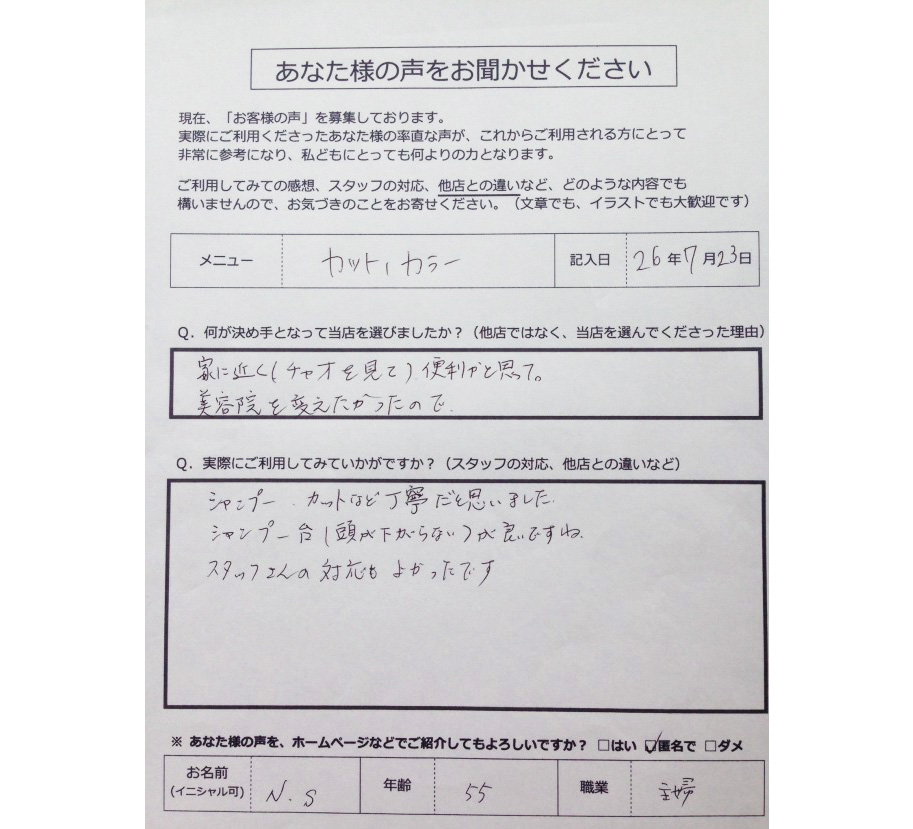 あなた様の声をお聞かせください
現在、「お客様の声」を募集しております。
実際にご利用くださったあなた様の率直な声が、これからご利用される方にとって
非常に参考になり、私どもにとっても何よりの力となります。
ご利用してみての感想、スタッフの対応、他店との違いなど、どのような内容でも
構いませんので、お気づきのことをお寄せください。（文章でも、イラストでも大歓迎です）
メニュー カット、カラー 記入日 26年7月23日
Q．何が決め手となって当店を選びましたか？（他店ではなく、当店を選んでくださった理由）
家に近く（チャオを見て）便利かと思って。
美容院を変えたかったので.
Q．実際にご利用してみていかがですか？（スタッフの対応、他店との違いなど）
シャンプー、カットなど丁寧だと思いました.
シャンプー台（頭が下がらない）が良いですね.
スタッフさんの対応もよかったです
※ あなた様の声を、ホームページなどでご紹介してもよろしいですか？ □はい ☑匿名で □ダメ
お名前 N.S 年齢 55 職業 主婦
（イニシャル可）